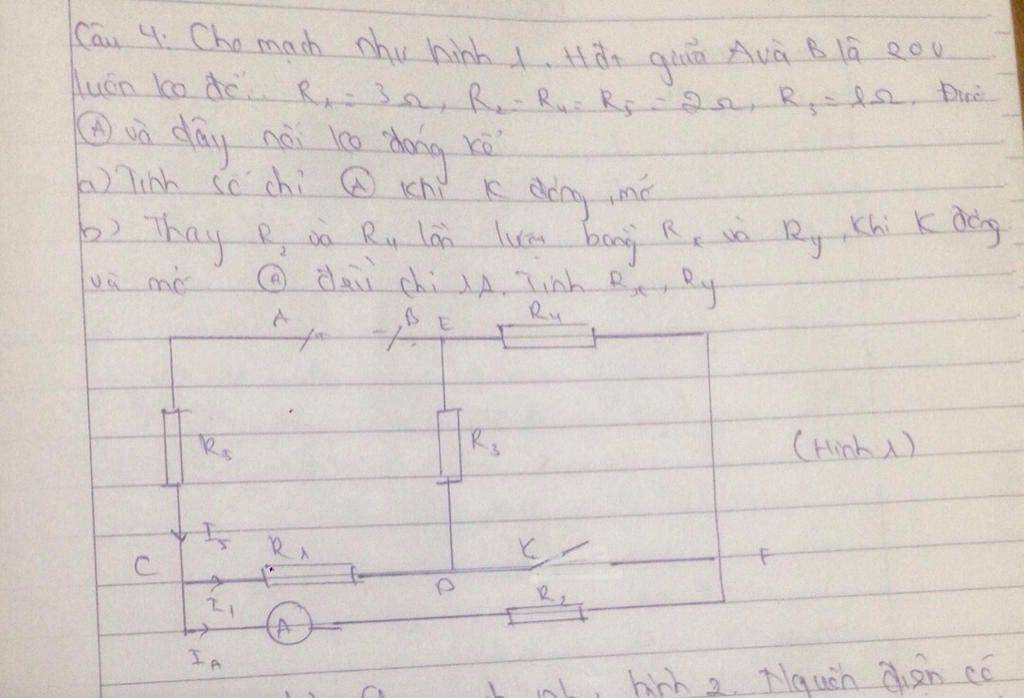 Câu 4: Cho mạch như hình 1. Hđt giữa A và B là 20V
luôn ko đổi. R1 = 3Ω, R2 = R4 = R5 = 2Ω, R3 = 1Ω.
(A) và dây nối ko đáng kể
a) Tính số chỉ (A) khi K đóng, mở
b) Thay R2 và R4 lần lượt bằng Rx và Ry, khi K đóng
và mở (A) đều chỉ 1A. Tính Rx, Ry
A B E R4
R5 R3 (Hình 1)
I5
C R1 K F
I1 D R2
A
IA
hình 2. Nguồn điện có